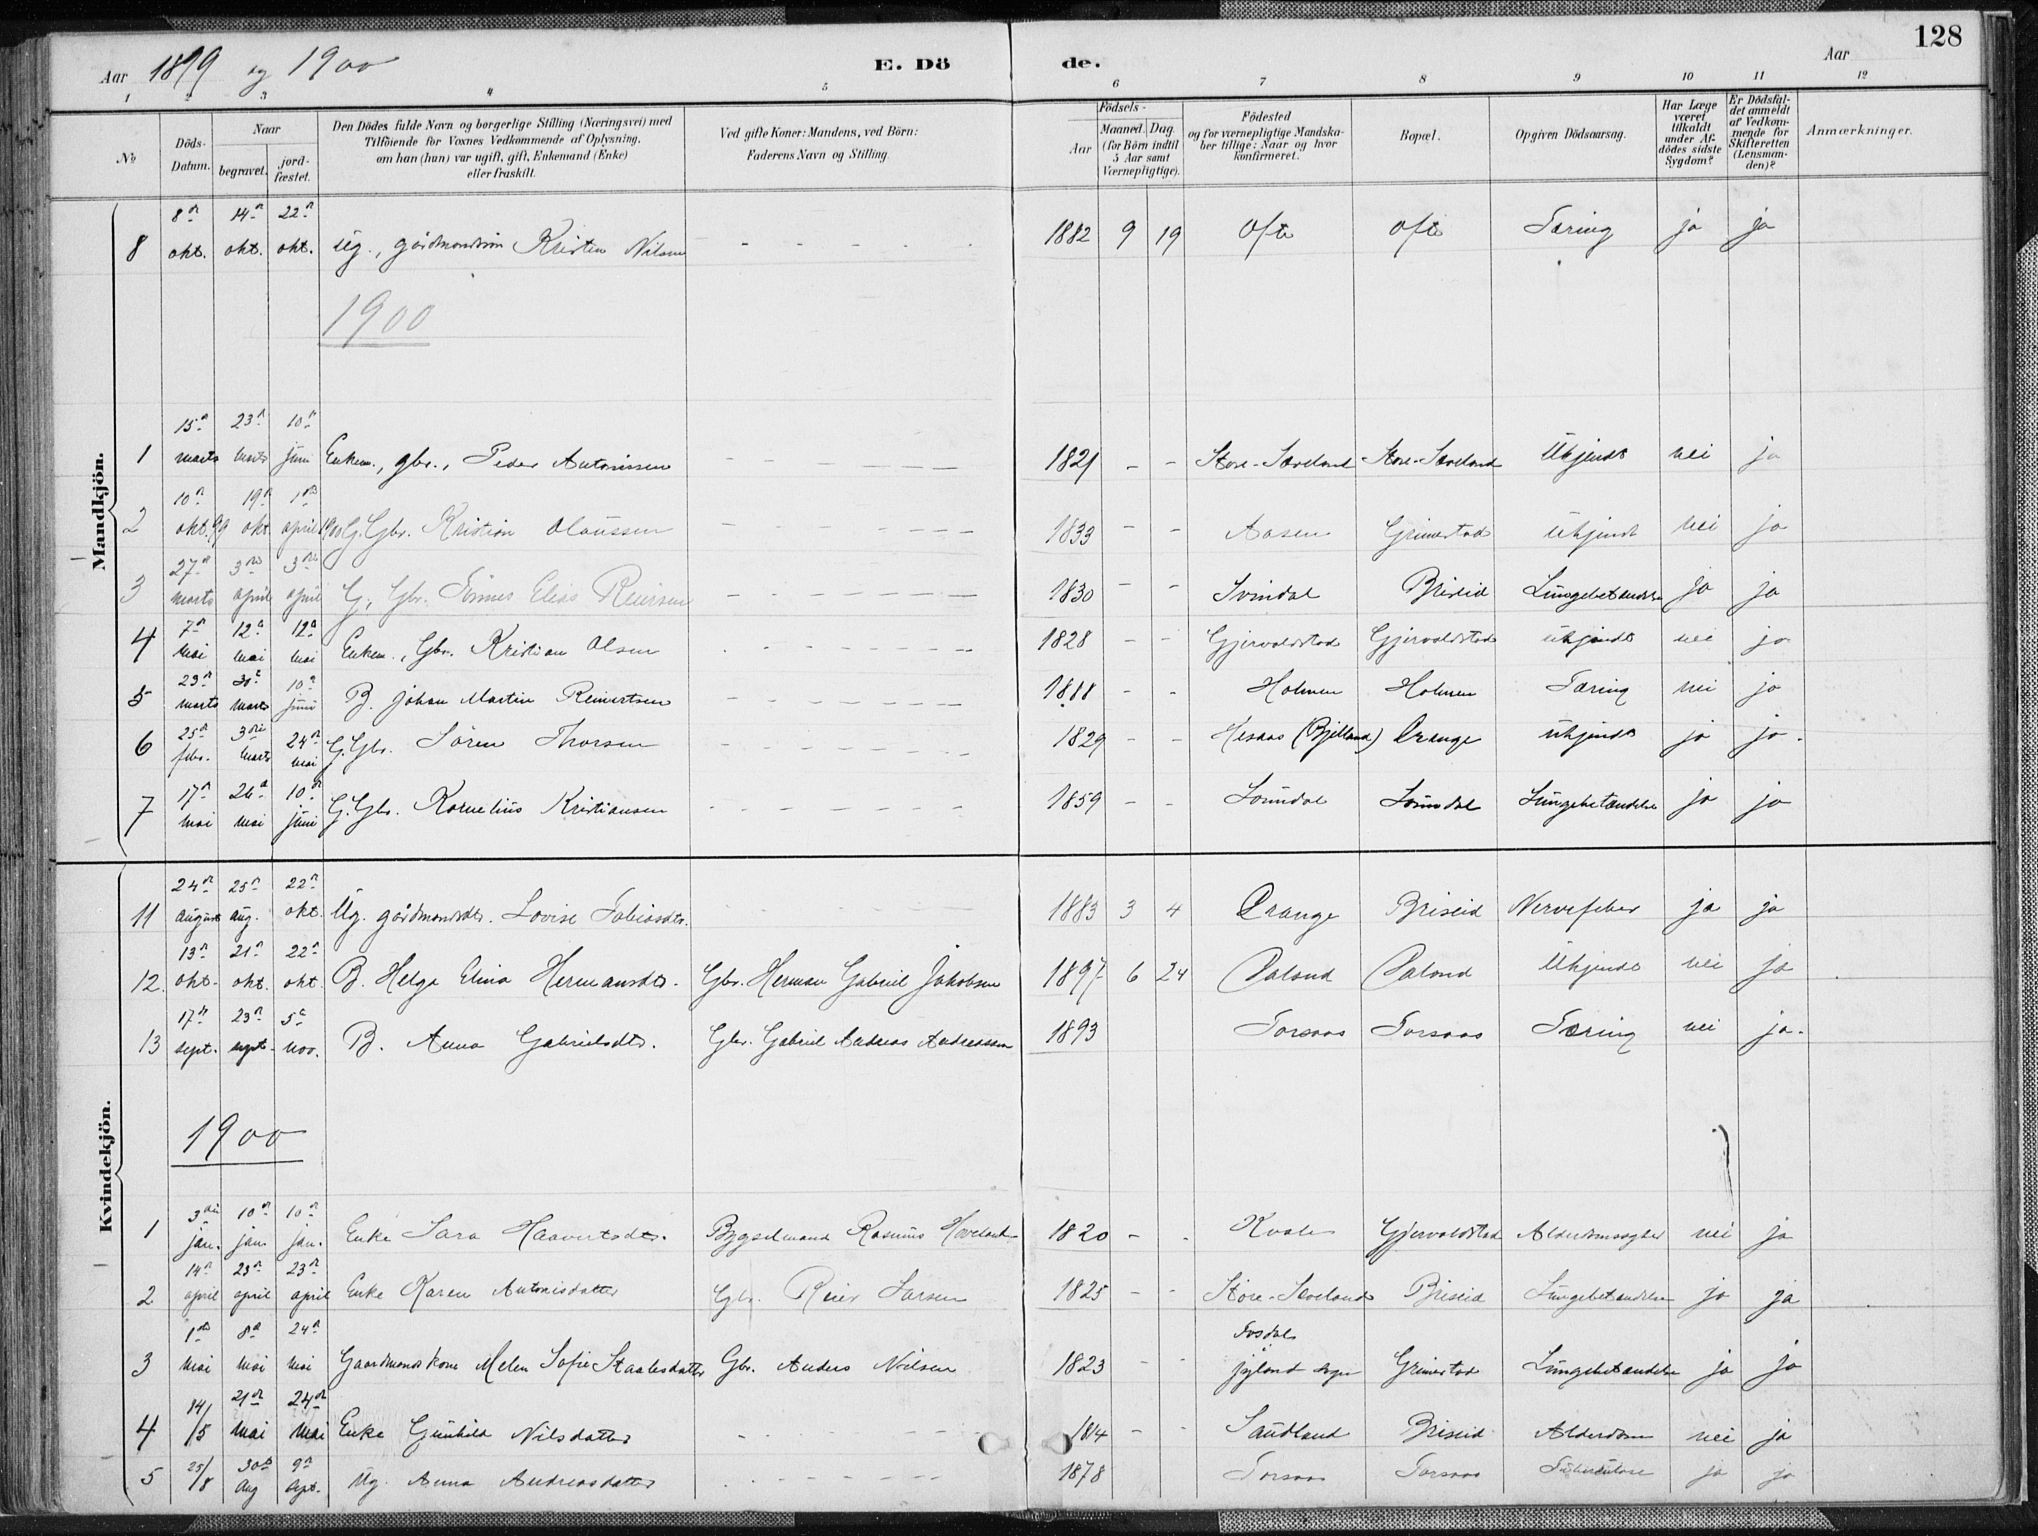 128
Aar 1899 og 1900 E. Dö de. Aar
1 2 3 4 5 6 7 8 9 10 11 12
No
Döds-Datum.
Naar
begravet.
jord-fæstet.
Den Dödes fulde Navn og borgerlige Stilling (Næringsvei) med
Tilföiende for Voxnes Vedkommende af Oplysning,
om han (hun) var ugift, gift, Enkemand (Enke)
eller fraskilt.
Ved gifte Koner: Mandens, ved Börn:
Faderens Navn og Stilling.
Födsels-
Aar
Maaned. Dag.
(for Börn indtil
5 Aar samt
Værnepligtige).
Födested
og for værnepligtige Mandska-
ber tillige: Naar og hvor
konfirmeret.
Bopæl.
Opgiven Dödsaarsag.
Har Læge
været
tilkaldt
under Af-
dödes sidste
Sygdom?
Er Dödsfal-
det anmeldt
af Vedkom-
mende for
Skifteretten
(Lensman-
den)?
Anmærkninger.
Mandkjön.
8 8de okt. 14de okt. 22de okt. Ug., gårdmandssøn Kristen Nilsen - - - - - 1882 9 19 Ofte Ofte Tæring ja ja
1900
1 15de marts 23de marts 10de juni Enkem., gbr., Peder Antonissen - - - - - 1821 - - Store-Sæveland Store-Sæveland Ukjendt nei ja
2 10de okt. 99 19de okt. 1ste april 1900 G. Gbr. Kristian Olaussen - - - - - 1833 - - Aasen Grimestad Ukjendt nei ja
3 27de marts 3die april 3die april G, Gbr. Tønnes Elias Reiersen - - - - - 1830 - - Svindal Briseid Lungebetændelse ja ja
4 7de mai 12te mai 12te mai Enkem., Gbr. Kristian Olsen - - - - - 1828 - - Gjervoldstad Gjervoldstad ukjendt nei ja
5 23de marts 30te marts 10de juni B. Johan Martin Reinertsen - - - - - 1811 - - Holmen Holmen Tæring nei ja
6 25de febr. 3die marts 24de mai G. Gbr. Søren Thorsen - - - - - 1829 - - Hesaas (Bjelland) Drange ukjendt ja ja.
7 17de mai 26de mai 10de juni G. Gbr. Kornelius Kristiansen - - - - - 1859 - - Loundal Loundal Lungebetændelse ja ja
Kvindekjön.
11 24de august 25de aug. 22de okt. Ug. gårdmandsdtr. Lovise Tobiasdtr. - - - - - 1883 3 4 Drange Briseid Nervefeber ja ja
12. 13de okt. 21de okt. 22de okt. B. Helga Elina Hermansdtr. Gbr. Herman Gabriel Jakobsen 1897 6 24 Daland Daland Ukjendt nei ja
13 17de sept. 23de sept. 5te nov. B. Anna Gabrielsdtr. Gbr. Gabriel Andreas Andreassen 1893 Torsaas Torsaas Tæring nei ja.
1900
1 3die jan. 10de jan. 10de jan. Enke Sara Haavertsdtr. Bygselmand Rasmus Hoveland 1820 - - Kvale Gjervoldstad Alderdomssvaghed nei ja
2 14de april 23de april 23de april Enke Karen Antonisdatter Gbr. Reier Larsen 1825 - - Store-Sæveland Briseid Lungebetændelse ja ja
3 1ste mai 8de mai 24de mai Gaardmandskone Melen Sofie Staalesdatter Gbr. Anders Nilsen 1823 - - Fosdal i Fjyland sogn Grimestad Lungebetændelse ja ja
4 14/5 21de mai 24de mai Enke Gunhild Nilsdatter - - - - - 1814 - - Saudland Briseid Alderdom nei ja
5 25/8 30te Aug 9de Spt. Ug. Anna Andreasdatter - - - - - 1878 Torsaas Torsaas Tuberkulose ja ja